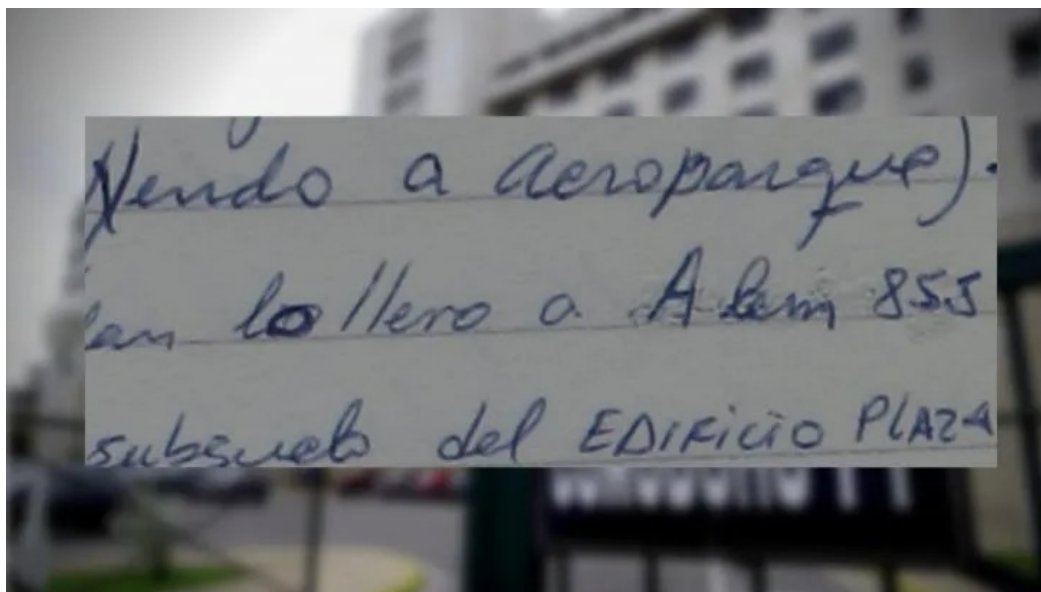 Yendo a aeroparque).
lo llevo a Alem 855
subsuelo del EDIFICIO PLAZA